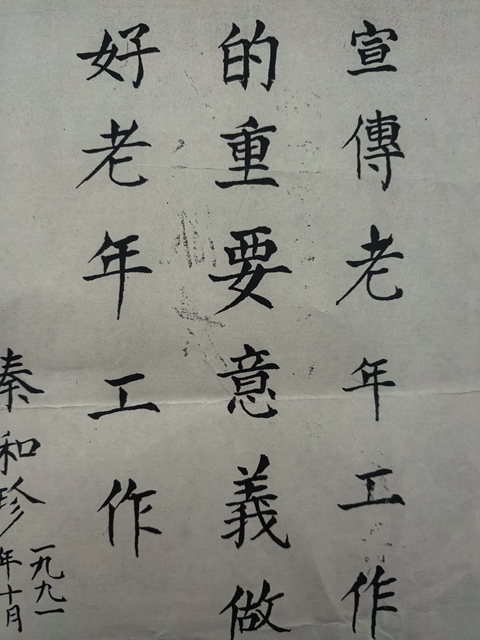 宣傳老年工作
的重要意義做
好老年工作
秦和珍
一九九一
年十月